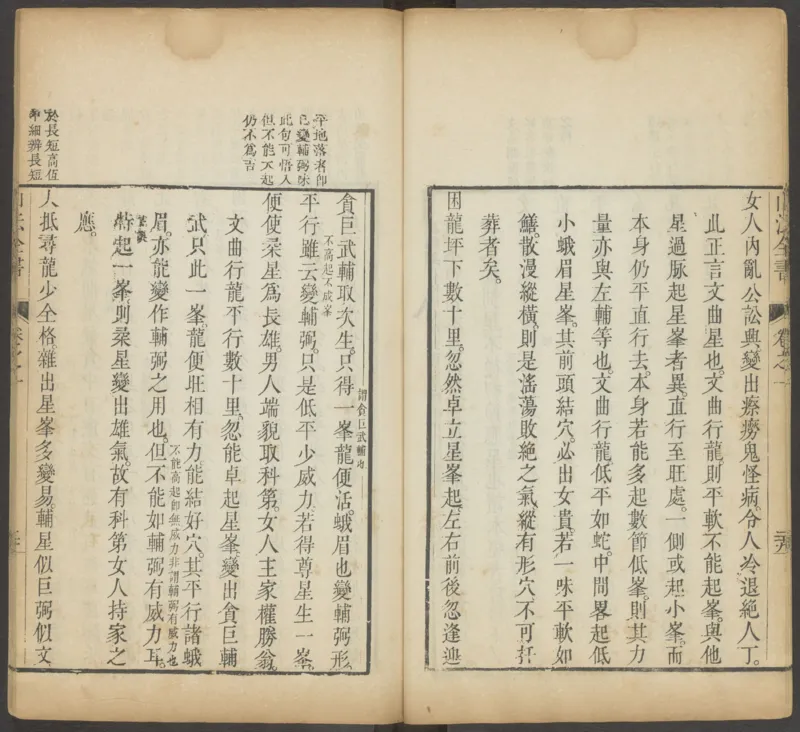 女人內亂公訟興變出瘵癆鬼怪病令人冷退絕人丁
此正言文曲星也文曲行龍則平軟不能起峯與他
星過脉起星峯者異直行至旺處一側或起小峯而
本身仍平直行去本身若能多起數節低峯則其力
量亦與左輔等也文曲行龍低平如蛇中間畧起低
小蛾眉星峯其前頭結穴必出女貴若一味平軟如
鱔散漫縱橫則是滛蕩敗絶之氣縱有形穴不可扦
葬者矣
困龍坪下數十里忽然卓立星峯起左右前後忽逢迎
山法全書
卷之一
平地落者即
已變輔弼味
此句可悟人
但不能大起
仍不爲吉
貪巨武輔取次生只得一峯龍便活蛾眉也變輔弼形
謂貪巨武輔也
不高起不成峯
平行雖云變輔弼只是低平少威力若得尊星生一峯
便使柔星爲長雄男人端貌取科第女人主家權勝翁
文曲行龍平行數十里忽能卓起星峯變出貪巨輔
武只此一峯龍便旺相有力能結好穴其平行諸蛾
眉亦能變作輔弼之用也但不能如輔弼有威力耳
不能高起即無威力非謂輔弼有威力也
特起一峯則柔星變出雄氣故有科第女人持家之
應
於長短高伍
細辨長短
人抵尋龍少全格雜出星峯多變易輔星似巨弼似文
山法全書
卷之一